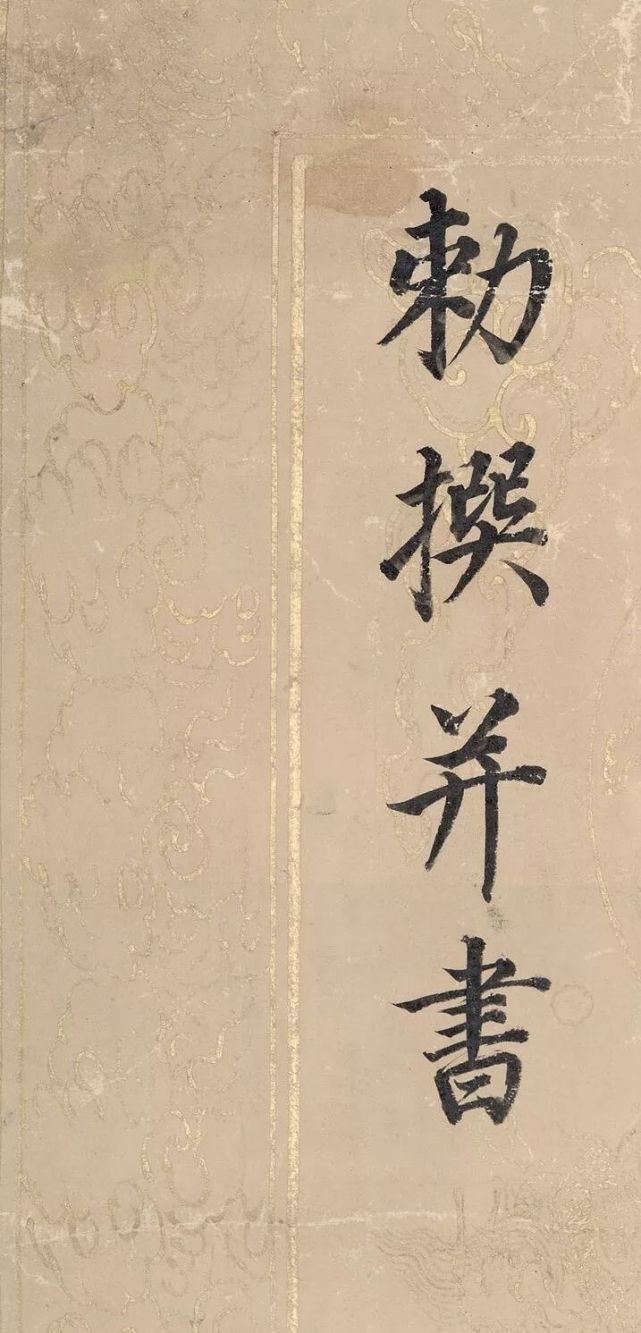 勑撰并書